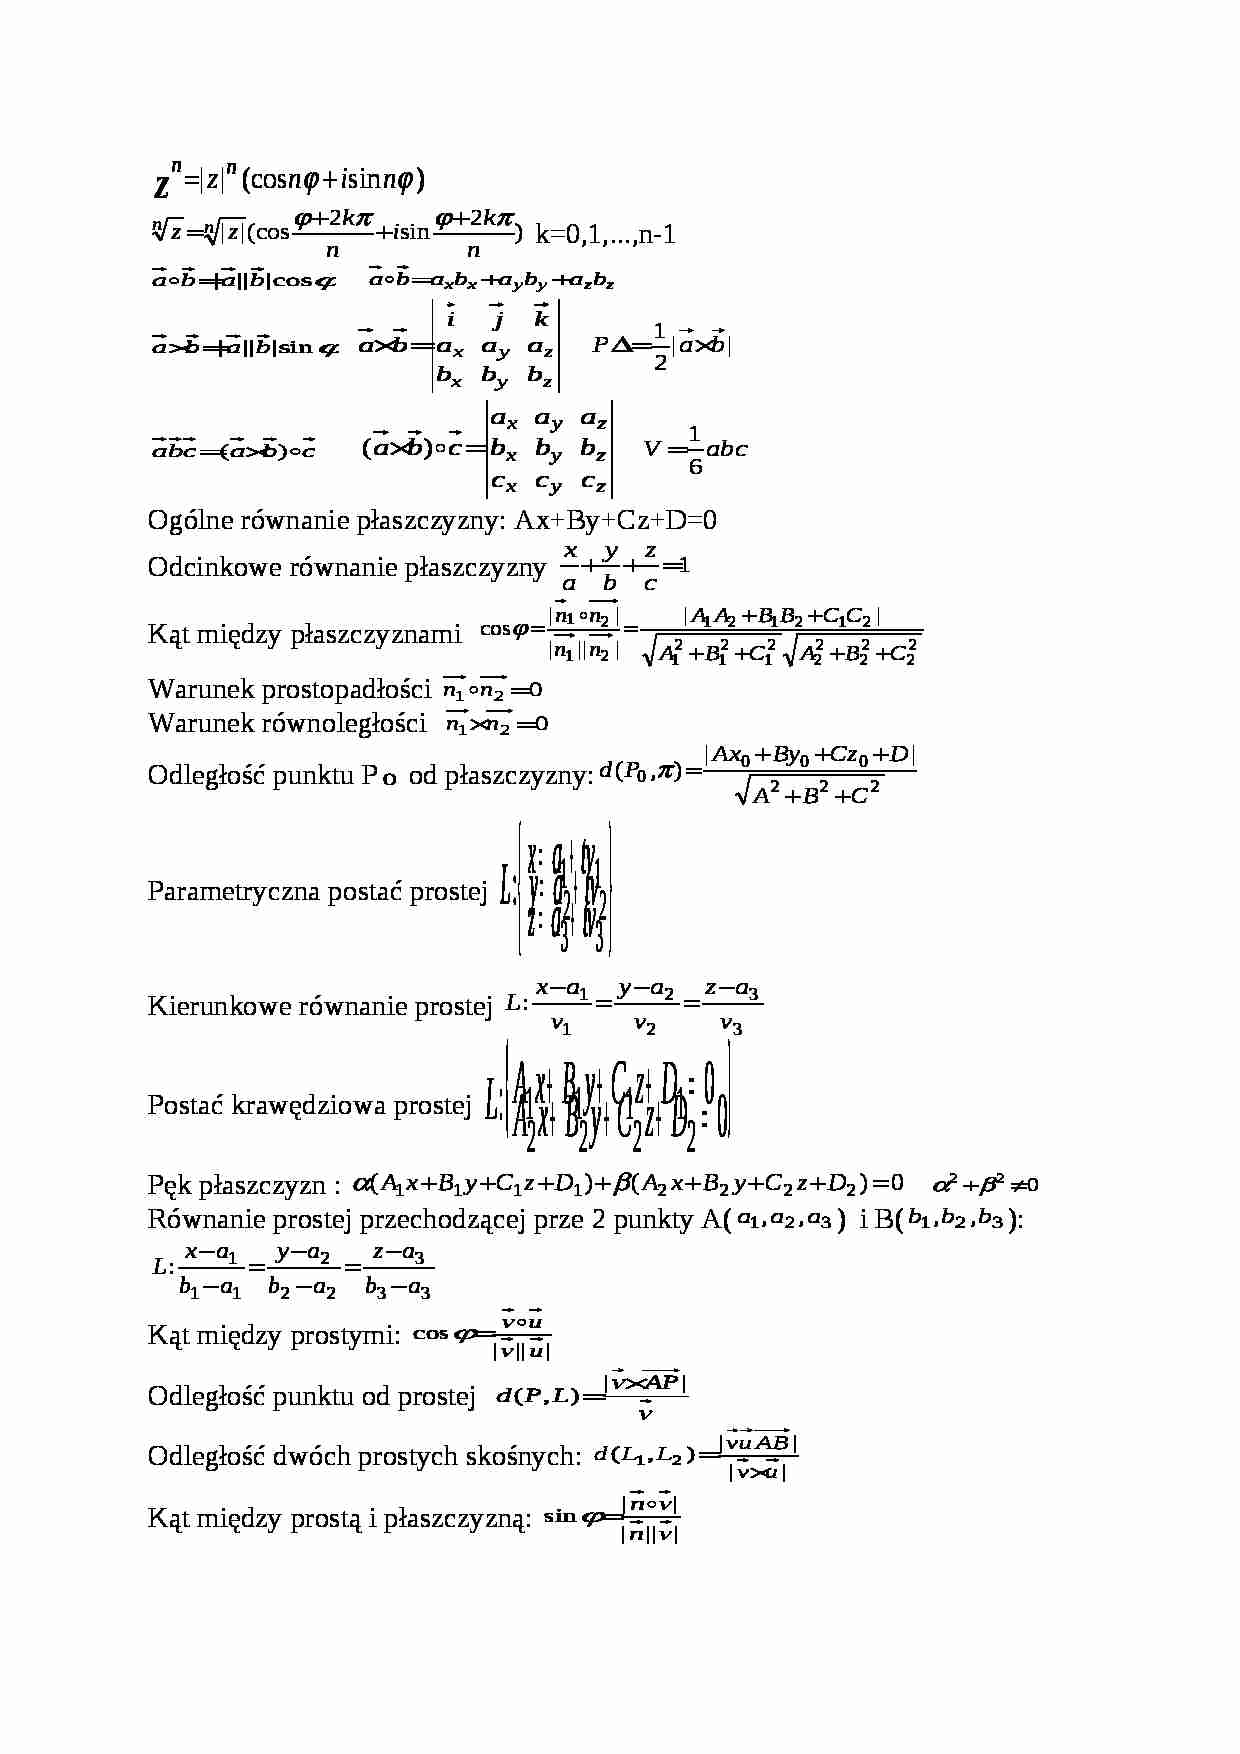 zⁿ=|z|ⁿ(cosnφ+isinnφ)
ⁿ√z=ⁿ√|z|(cos (φ+2kπ)/n +isin (φ+2kπ)/n) k=0,1,...,n-1
a⃗∘b⃗=|a⃗||b⃗|cosφ a⃗∘b⃗=aₓbₓ+a_yb_y+a_zb_z
a⃗×b⃗=|a⃗||b⃗|sinφ a⃗×b⃗=|i⃗ j⃗ k⃗; aₓ a_y a_z; bₓ b_y b_z| PΔ=1/2|a⃗×b⃗|
a⃗b⃗c⃗=(a⃗×b⃗)∘c⃗ (a⃗×b⃗)∘c⃗=|aₓ a_y a_z; bₓ b_y b_z; cₓ c_y c_z| V=1/6 abc
Ogólne równanie płaszczyzny: Ax+By+Cz+D=0
Odcinkowe równanie płaszczyzny x/a+y/b+z/c=1
Kąt między płaszczyznami cosφ=|n₁⃗∘n₂⃗|/|n₁⃗||n₂⃗|=|A₁A₂+B₁B₂+C₁C₂|/√(A₁²+B₁²+C₁²)√(A₂²+B₂²+C₂²)
Warunek prostopadłości n₁⃗∘n₂⃗=0
Warunek równoległości n₁⃗×n₂⃗=0
Odległość punktu P₀ od płaszczyzny: d(P₀,π)=|Ax₀+By₀+Cz₀+D|/√(A²+B²+C²)
Parametryczna postać prostej L:{x=a₁+tv₁
y=a₂+tv₂
z=a₃+tv₃}
Kierunkowe równanie prostej L:(x−a₁)/v₁=(y−a₂)/v₂=(z−a₃)/v₃
Postać krawędziowa prostej L:{A₁x+B₁y+C₁z+D₁=0
A₂x+B₂y+C₂z+D₂=0}
Pęk płaszczyzn : α(A₁x+B₁y+C₁z+D₁)+β(A₂x+B₂y+C₂z+D₂)=0 α²+β²≠0
Równanie prostej przechodzącej prze 2 punkty A(a₁,a₂,a₃) i B(b₁,b₂,b₃):
L:(x−a₁)/(b₁−a₁)=(y−a₂)/(b₂−a₂)=(z−a₃)/(b₃−a₃)
Kąt między prostymi: cosφ=v⃗∘u⃗/|v⃗||u⃗|
Odległość punktu od prostej d(P,L)=|v⃗×AP⃗|/v⃗
Odległość dwóch prostych skośnych: d(L₁,L₂)=|v⃗u⃗AB⃗|/|v⃗×u⃗|
Kąt między prostą i płaszczyzną: sinφ=|n⃗∘v⃗|/|n⃗||v⃗|